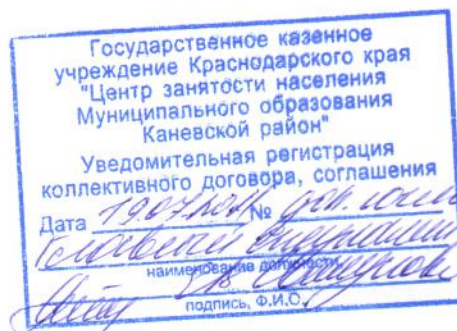 Государственное казенное
учреждение Краснодарского края
"Центр занятости населения
Муниципального образования
Каневской район"
Уведомительная регистрация
коллективного договора, соглашения
Дата 19.07.20 №
наименование должности
подпись, Ф.И.О.